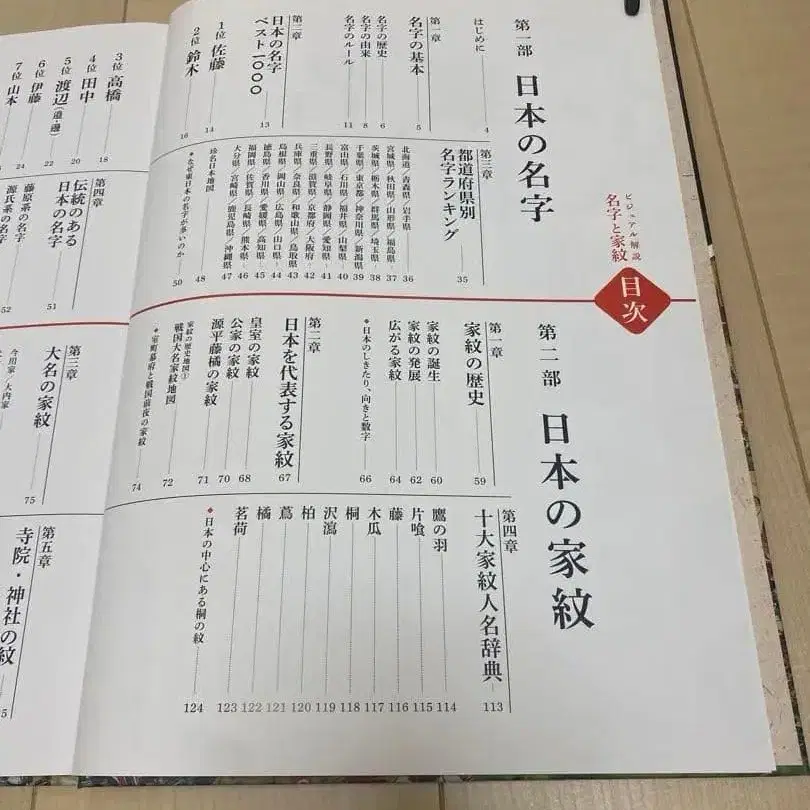 ビジュアル解説
名字と家紋
目次
第一部 日本の名字
はじめに 4
第一章
名字の基本 5
名字の歴史 6
名字の由来 8
名字のルール 11
第二章
日本の名字
ベスト一〇〇〇 13
1位 佐藤 14
2位 鈴木 16
3位 高橋 18
4位 田中 20
5位 渡辺(邉・邊) 22
6位 伊藤
7位 山本 24
第三章
都道府県別
名字ランキング 35
北海道/青森県/岩手県 36
宮城県/秋田県/山形県/福島県 37
茨城県/栃木県/群馬県/埼玉県 38
千葉県/東京都/神奈川県/新潟県 39
富山県/石川県/福井県/山梨県 40
長野県/岐阜県/静岡県/愛知県 41
三重県/滋賀県/京都府/大阪府 42
兵庫県/奈良県/和歌山県/鳥取県 43
島根県/岡山県/広島県/山口県 44
徳島県/香川県/愛媛県/高知県 45
福岡県/佐賀県/長崎県/熊本県 46
大分県/宮崎県/鹿児島県/沖縄県 47
珍名日本地図 48
◆なぜ東日本の名字が多いのか 50
第四章
伝統のある
日本の名字 51
藤原系の名字 52
源氏系の名字
第二部 日本の家紋
第一章
家紋の歴史 59
家紋の誕生 60
家紋の発展 62
広がる家紋 64
◆日本のしきたり、向きと数字 66
第二章
日本を代表する家紋 67
皇室の家紋 68
公家の家紋 70
源平藤橘の家紋 71
家紋の歴史地図①
戦国大名家紋地図 72
◆室町幕府と戦国前夜の家紋 74
第三章
大名の家紋 75
今川家/大内家
第四章
十大家紋人名辞典 113
鷹の羽 114
片喰 115
藤 116
木瓜 117
桐 118
沢瀉 119
柏 120
蔦 121
橘 122
茗荷 123
◆日本の中心にある桐の紋 124
第五章
寺院・神社の紋